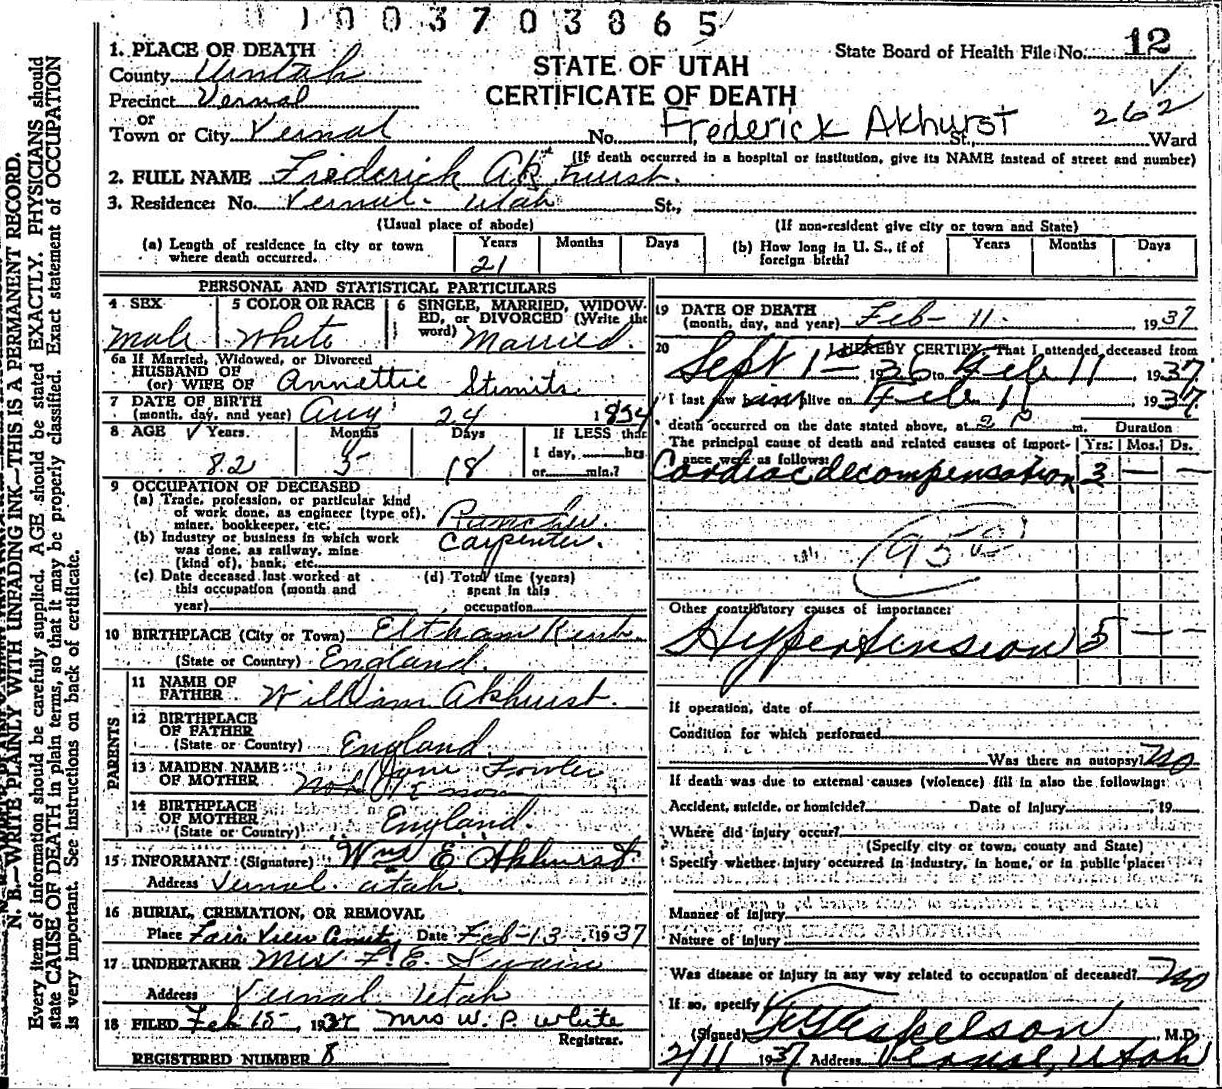 0 1 0 0 3 7 0 3 8 6 5
State Board of Health File No. 12
STATE OF UTAH
CERTIFICATE OF DEATH
1. PLACE OF DEATH
County Uintah
Precinct Vernal
or
Town or City Vernal No. Frederick Akhurst St., 262 Ward
(If death occurred in a hospital or institution, give its NAME instead of street and number)
2. FULL NAME Frederick Akhurst.
3. Residence: No. Vernal. Utah St.,
(Usual place of abode) (If non-resident give city or town and State)
(a) Length of residence in city or town where death occurred. Years 21 Months Days
(b) How long in U. S., if of foreign birth? Years Months Days
PERSONAL AND STATISTICAL PARTICULARS
4 SEX Male
5 COLOR OR RACE White
6 SINGLE, MARRIED, WIDOWED, or DIVORCED (Write the word) Married.
6a If Married, Widowed, or Divorced
HUSBAND OF
(or) WIFE OF Annettie Stimits
7 DATE OF BIRTH
(month, day, and year) Aug 24 1854
8 AGE Years Months Days If LESS than
82 5 18 1 day, hrs
or min.?
9 OCCUPATION OF DECEASED
(a) Trade, profession, or particular kind
of work done, as engineer (type of),
miner, bookkeeper, etc. Rancher.
(b) Industry or business in which work Carpenter.
was done, as railway, mine
(kind of), bank, etc.
(c) Date deceased last worked at
this occupation (month and
year)
(d) Total time (years)
spent in this
occupation
10 BIRTHPLACE (City or Town) Eltham Kent.
(State or Country) England.
PARENTS
11 NAME OF
FATHER William Akhurst.
12 BIRTHPLACE
OF FATHER
(State or Country) England.
13 MAIDEN NAME
OF MOTHER Jane Fowler
14 BIRTHPLACE
OF MOTHER
(State or Country) England.
15 INFORMANT (Signature) Wm E Akhurst
Address Vernal. Utah.
16 BURIAL, CREMATION, OR REMOVAL
Place Fair View Cemetery Date Feb-13 1937
17 UNDERTAKER Mrs F. E. Swain
Address Vernal Utah
18 FILED Feb 15, 1937 Mrs W. P. White
Registrar.
REGISTERED NUMBER 8
19 DATE OF DEATH
(month, day, and year) Feb- 11 1937
20 I HEREBY CERTIFY, That I attended deceased from
Sept 1- 1936 to Feb 11, 1937
I last saw him alive on Feb 11 1937
death occurred on the date stated above, at 2 P m. Duration
The principal cause of death and related causes of importance were as follows: Yrs. Mos. Ds.
Cardiac decompensation 3 — —
95
Other contributory causes of importance:
Hypertension 5 — —
If operation, date of
Condition for which performed
Was there an autopsy? No
If death was due to external causes (violence) fill in also the following:
Accident, suicide, or homicide? Date of injury 19
Where did injury occur?
(Specify city or town, county and State)
Specify whether injury occurred in industry, in home, or in public place:
Manner of injury
Nature of injury
Was disease or injury in any way related to occupation of deceased? No
If so, specify
(Signed) Eskelson M.D.
2/11 1937 Address Vernal, Utah
N. B.—WRITE PLAINLY WITH UNFADING INK—THIS IS A PERMANENT RECORD.
Every item of information should be carefully supplied. AGE should be stated EXACTLY. PHYSICIANS should
state CAUSE OF DEATH in plain terms, so that it may be properly classified. Exact statement of OCCUPATION
is very important. See instructions on back of certificate.